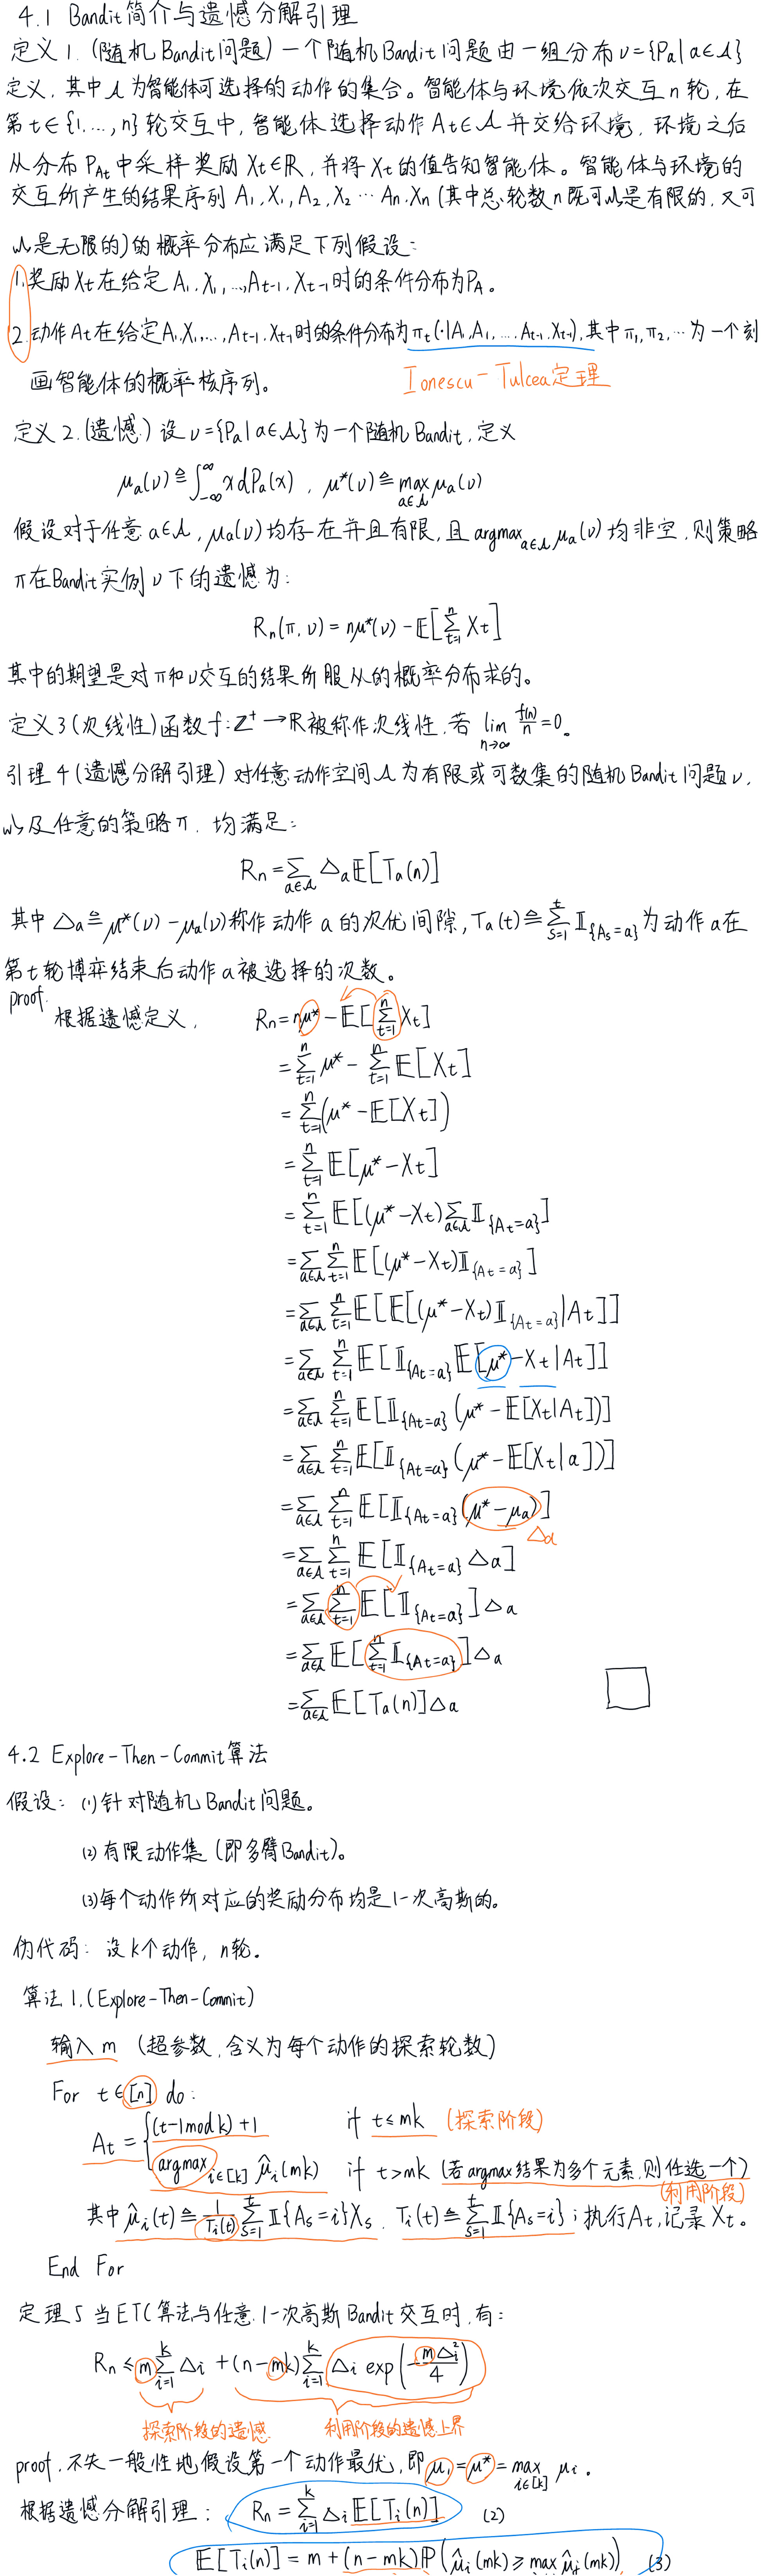 4.1 Bandit简介与遗憾分解引理
定义1.(随机Bandit问题)一个随机Bandit问题由一组分布ν={Pa|a∈A}
定义,其中A为智能体可选择的动作的集合。智能体与环境依次交互n轮,在
第t∈{1,...,n}轮交互中,智能体选择动作At∈A并交给环境,环境之后
从分布P_At中采样奖励Xt∈R,并将Xt的值告知智能体。智能体与环境的
交互所产生的结果序列A₁,X₁,A₂,X₂…An,Xn(其中总轮数n既可以是有限的,又可
以是无限的)的概率分布应满足下列假设:
1.奖励Xt在给定A₁,X₁,...,At-1,Xt-1时的条件分布为P_A。
2.动作At在给定A₁,X₁,...,At-1,Xt-1时的条件分布为πt(·|A₁,A₁,...,At-1,Xt-1),其中π₁,π₂,…为一个刻
画智能体的概率核序列。 Ionescu-Tulcea定理
定义2.(遗憾)设ν={Pa|a∈A}为一个随机Bandit,定义
μa(ν)≜∫_{-∞}^{∞}xdPa(x), μ*(ν)≜max_{a∈A}μa(ν)
假设对于任意a∈A,μa(ν)均存在并且有限,且argmax_{a∈A}μa(ν)均非空,则策略
π在Bandit实例ν下的遗憾为:
Rn(π,ν)=nμ*(ν)-E[∑_{t=1}^{n}Xt]
其中的期望是对π和ν交互的结果所服从的概率分布求的。
定义3(次线性)函数f:Z⁺→R被称作次线性,若lim_{n→∞} f(n)/n=0。
引理4(遗憾分解引理)对任意动作空间A为有限或可数集的随机Bandit问题ν,
以及任意的策略π,均满足:
Rn=∑_{a∈A}△aE[Ta(n)]
其中△a≜μ*(ν)-μa(ν)称作动作a的次优间隙,Ta(t)≜∑_{s=1}^{t}𝕀_{As=a}为动作a在
第t轮博弈结束后动作a被选择的次数。
proof.
根据遗憾定义, Rn=nμ*-E[∑_{t=1}^{n}Xt]
=∑_{t=1}^{n}μ*-∑_{t=1}^{n}E[Xt]
=∑_{t=1}^{n}(μ*-E[Xt])
=∑_{t=1}^{n}E[μ*-Xt]
=∑_{t=1}^{n}E[(μ*-Xt)∑_{a∈A}𝕀_{At=a}]
=∑_{a∈A}∑_{t=1}^{n}E[(μ*-Xt)𝕀_{At=a}]
=∑_{a∈A}∑_{t=1}^{n}E[E[(μ*-Xt)𝕀_{At=a}|At]]
=∑_{a∈A}∑_{t=1}^{n}E[𝕀_{At=a}E[μ*-Xt|At]]
=∑_{a∈A}∑_{t=1}^{n}E[𝕀_{At=a}(μ*-E[Xt|At])]
=∑_{a∈A}∑_{t=1}^{n}E[𝕀_{At=a}(μ*-E[Xt|a])]
=∑_{a∈A}∑_{t=1}^{n}E[𝕀_{At=a}(μ*-μa)]
△a
=∑_{a∈A}∑_{t=1}^{n}E[𝕀_{At=a}△a]
=∑_{a∈A}∑_{t=1}^{n}E[𝕀_{At=a}]△a
=∑_{a∈A}E[∑_{t=1}^{n}𝕀_{At=a}]△a
=∑_{a∈A}E[Ta(n)]△a
4.2 Explore-Then-Commit算法
假设:(1)针对随机Bandit问题。
(2)有限动作集(即多臂Bandit)。
(3)每个动作所对应的奖励分布均是1-次高斯的。
伪代码:设k个动作,n轮。
算法1.(Explore-Then-Commit)
输入m (超参数,含义为每个动作的探索轮数)
For t∈[n] do:
At={(t-1 mod k)+1 if t≤mk (探索阶段)
argmax_{i∈[k]}μ̂i(mk) if t>mk (若argmax结果为多个元素,则任选一个)
(利用阶段)
其中μ̂i(t)≜1/Ti(t)∑_{s=1}^{t}𝕀{As=i}Xs, Ti(t)≜∑_{s=1}^{t}𝕀{As=i};执行At,记录Xt。
End For
定理5 当ETC算法与任意1-次高斯Bandit交互时,有:
Rn≤m∑_{i=1}^{k}△i+(n-mk)∑_{i=1}^{k}△i exp(-m△i²/4)
探索阶段的遗憾 利用阶段的遗憾上界
proof.不失一般性地,假设第一个动作最优,即μ₁=μ*=max_{i∈[k]}μi。
根据遗憾分解引理: Rn=∑_{i=1}^{k}△iE[Ti(n)] (2)
E[Ti(n)]=m+(n-mk)P(μ̂i(mk)≥max μ̂(mk)) (3)